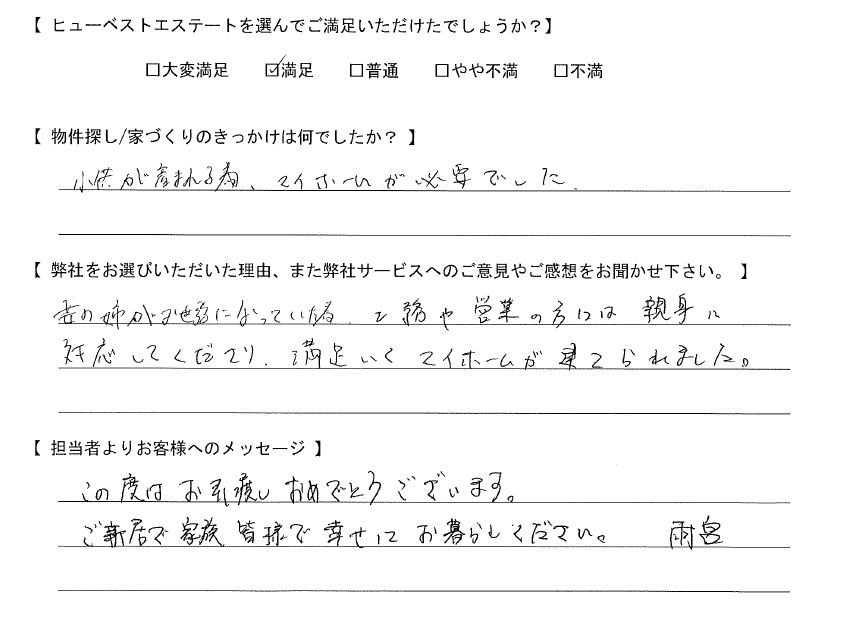 【 ヒューベストエステートを選んでご満足いただけたでしょうか？】
□大変満足 ☑満足 □普通 □やや不満 □不満
【 物件探し/家づくりのきっかけは何でしたか？ 】
小供が産まれる為、マイホームが必要でした.
【 弊社をお選びいただいた理由、また弊社サービスへのご意見やご感想をお聞かせ下さい。 】
妻の姉がお世話になっていた為、工務や営業の方には親身に
対応してくださり、満足いくマイホームが建てられました。
【 担当者よりお客様へのメッセージ 】
この度はお引渡しおめでとうございます。
ご新居で家族皆様で幸せにお暮らしください。 雨宮